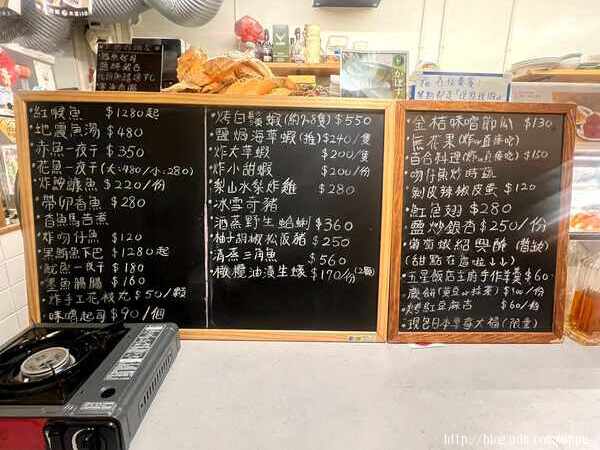 紅喉魚 $1280起
地震魚湯 $480
赤魚一夜干 $350
花魚一夜干(大:480/小:280)
炸 魚 $220/份
帶卵香魚 $280
香魚馬吉煮
炸吻仔魚 $120
黑鮪魚下巴 $1280起
魷魚一夜干 $180
墨魚腸腸 $160
炸手工花枝丸 $50/顆
味噌起司 $90/個
烤白鬚蝦(約7-8隻) $550
鹽焗海草蝦(推) $240/隻
炸大草蝦 $200/隻
炸小甜蝦 $200/份
梨山水梨炸雞 $280
冰雪可豬
酒蒸野生蛤蜊 $360
柚子胡椒松阪豬 $250
清蒸三角魚 $560
橄欖油漬生蠔 $170/份(2顆)
金桔味噌節瓜 $130
無花果(炸or直接吃)
百合料理(炸or直接吃) $150
吻仔魚炒時蔬
剝皮辣椒皮蛋 $120
紅魚翅 $280
鹽炒銀杏 $250/份
葡萄蛾紹興醉(昔缺)
(甜點在這啦↓↓)
五星飯店主廚手作羊羹 $60
$100/份
烤紅豆麻吉 $60/份
(限量)
http://blog.udn.com/